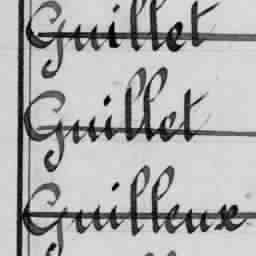 Guillet
Guillet
Guilleux